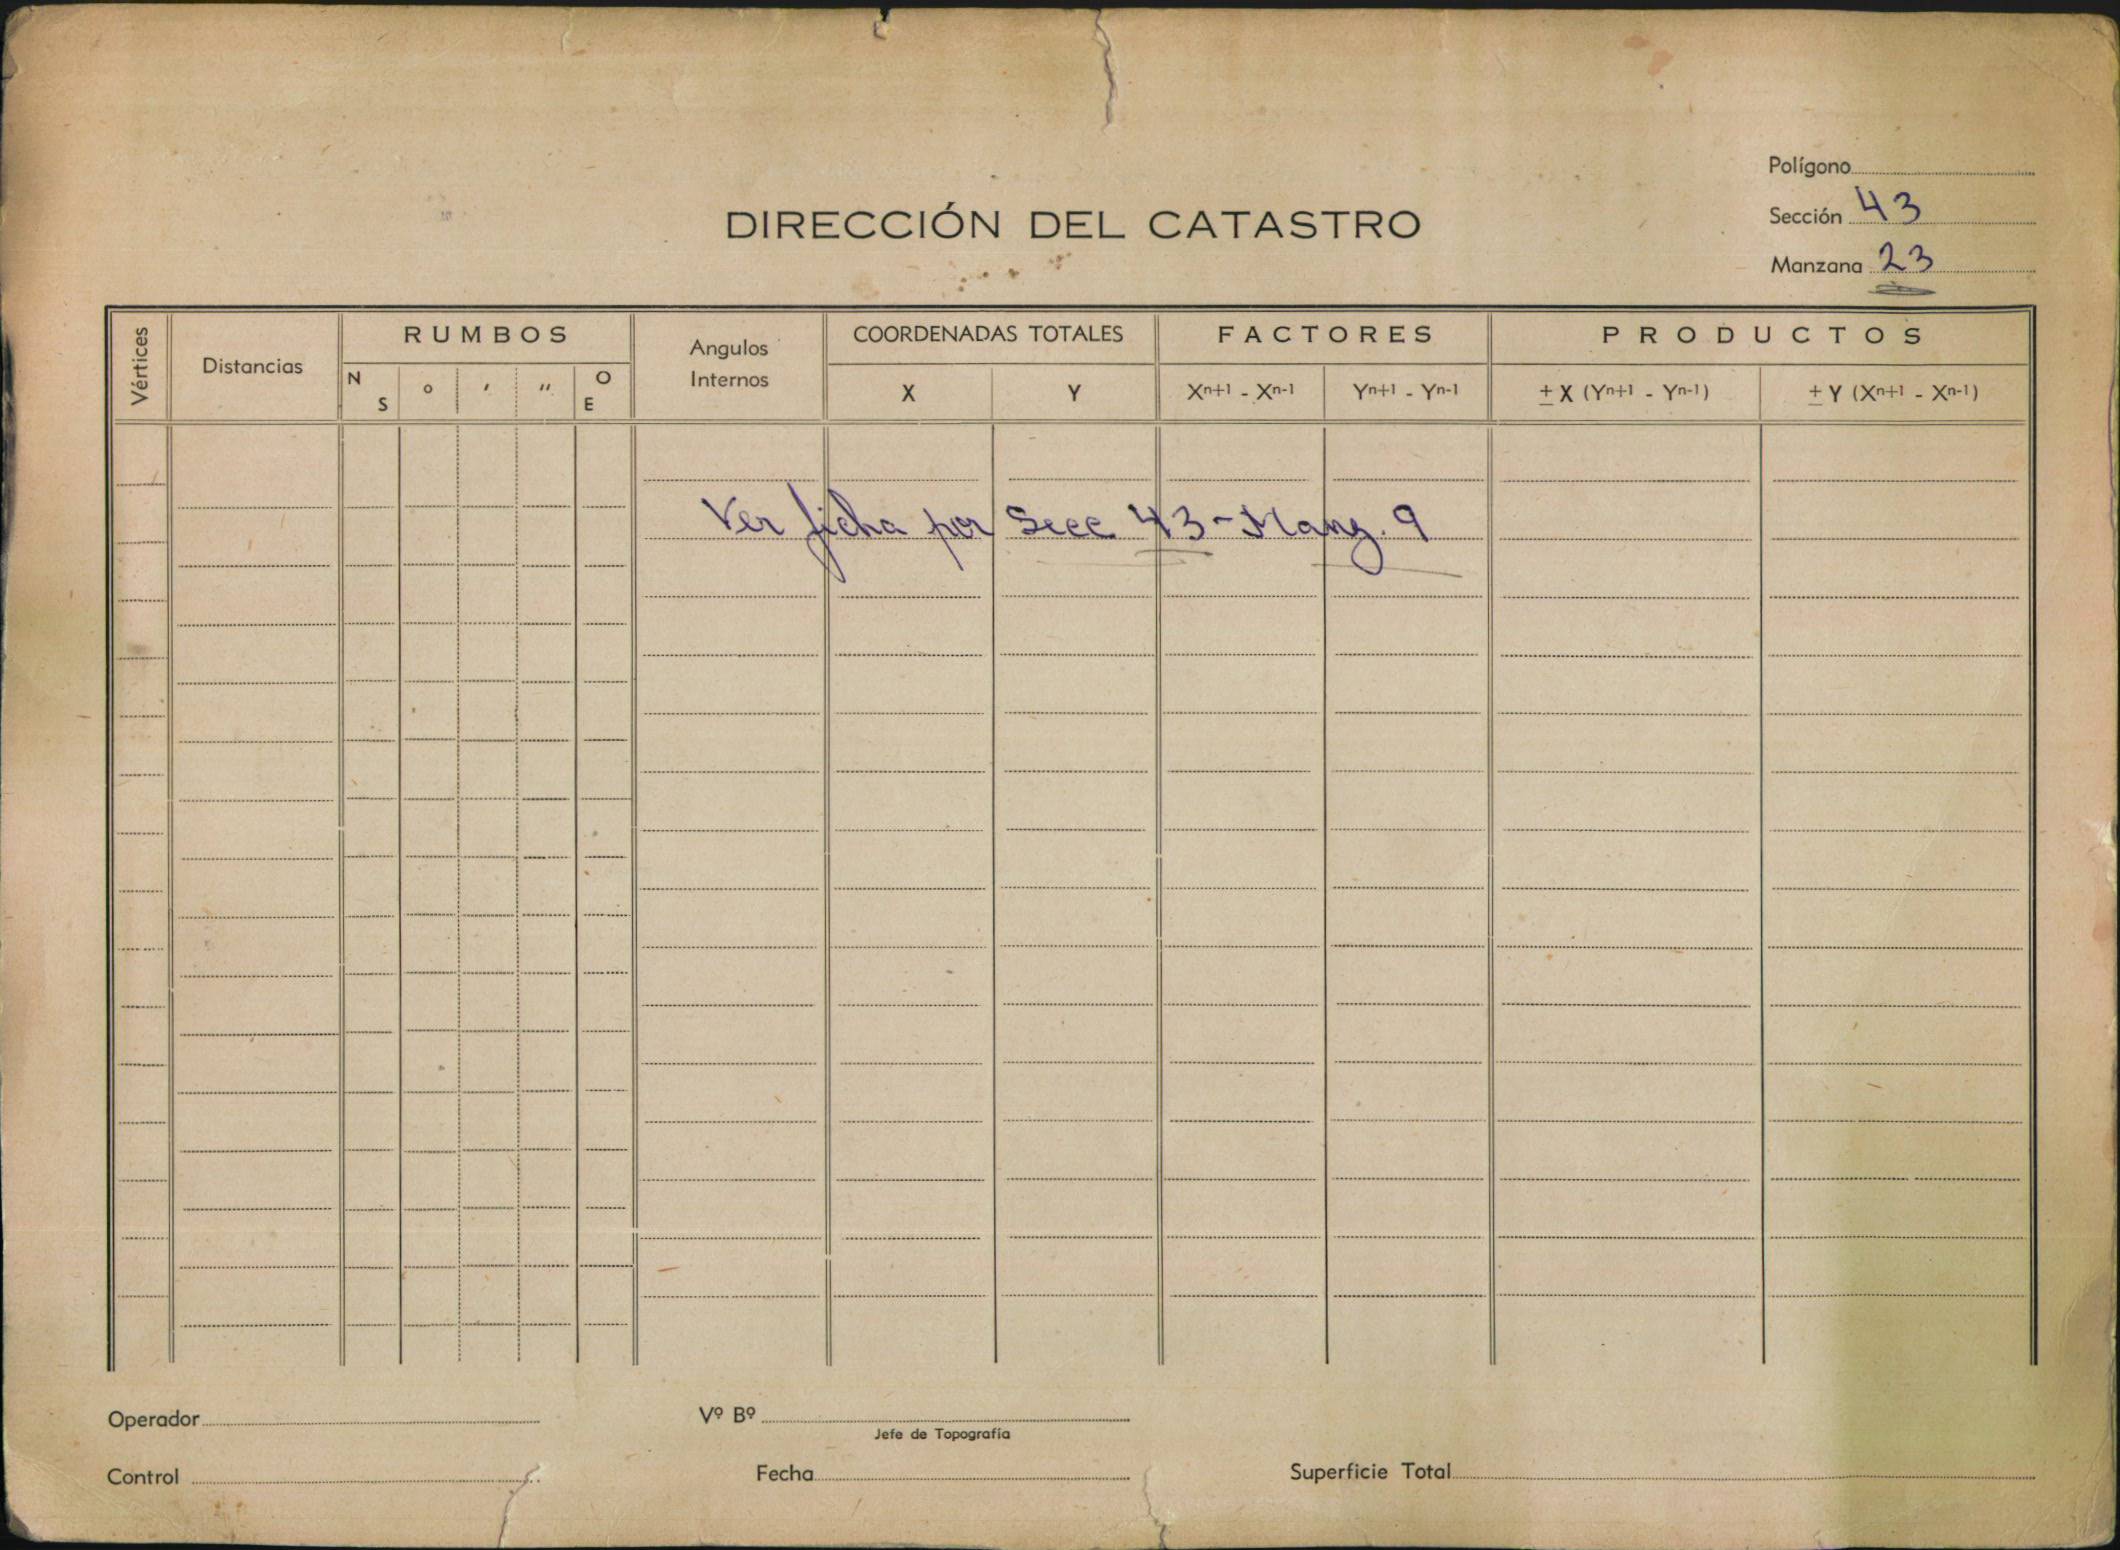 Polígono
Sección 43
DIRECCIÓN DEL CATASTRO
Manzana 23
Vértices
Distancias
RUMBOS
N S
o
′
″
O E
Angulos Internos
COORDENADAS TOTALES
X
Y
FACTORES
Xn+1 - Xn-1
Yn+1 - Yn-1
PRODUCTOS
± X (Yn+1 - Yn-1)
± Y (Xn+1 - Xn-1)
Ver ficha por Secc 43 - Manz. 9
Operador
Vº Bº
Jefe de Topografía
Control
Fecha
Superficie Total